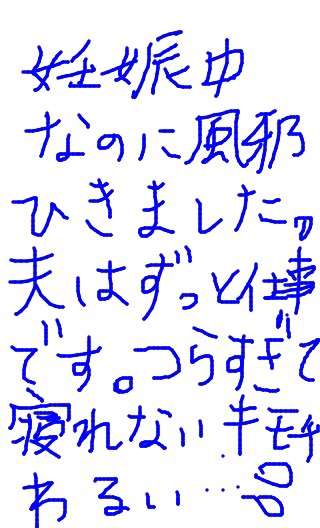 妊娠中
なのに風邪
ひきました。
夫はずっと仕事
です。つらすぎて
寝れない キモチ
わるい…